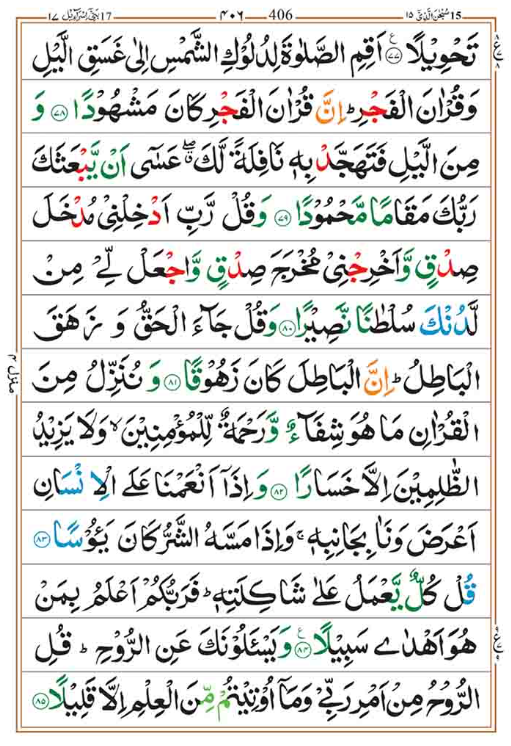 17 بنی اسرآءیل ۱۷ ۴۰۶ 406 15 سبحٰن الذی ۱۵
تَحْوِيْلًا ﴿۷۷﴾ اَقِمِ الصَّلٰوةَ لِدُلُوْكِ الشَّمْسِ اِلٰى غَسَقِ الَّيْلِ
وَقُرْاٰنَ الْفَجْرِ ؕ اِنَّ قُرْاٰنَ الْفَجْرِ كَانَ مَشْهُوْدًا ﴿۷۸﴾ وَ
مِنَ الَّيْلِ فَتَهَجَّدْ بِهٖ نَافِلَةً لَّكَ ۖۗ عَسٰٓى اَنْ يَّبْعَثَكَ
رَبُّكَ مَقَامًا مَّحْمُوْدًا ﴿۷۹﴾ وَقُلْ رَّبِّ اَدْخِلْنِىْ مُدْخَلَ
صِدْقٍ وَّاَخْرِجْنِىْ مُخْرَجَ صِدْقٍ وَّاجْعَلْ لِّىْ مِنْ
لَّدُنْكَ سُلْطٰنًا نَّصِيْرًا ﴿۸۰﴾ وَقُلْ جَآءَ الْحَقُّ وَ زَهَقَ
الْبَاطِلُ ؕ اِنَّ الْبَاطِلَ كَانَ زَهُوْقًا ﴿۸۱﴾ وَ نُنَزِّلُ مِنَ
الْقُرْاٰنِ مَا هُوَ شِفَآءٌ وَّرَحْمَةٌ لِّلْمُؤْمِنِيْنَ ۙ وَلَا يَزِيْدُ
الظّٰلِمِيْنَ اِلَّا خَسَارًا ﴿۸۲﴾ وَاِذَآ اَنْعَمْنَا عَلَى الْاِنْسَانِ
اَعْرَضَ وَنَاٰ بِجَانِبِهٖ ۚ وَاِذَا مَسَّهُ الشَّرُّ كَانَ يَـُٔوْسًا ﴿۸۳﴾
قُلْ كُلٌّ يَّعْمَلُ عَلٰى شَاكِلَتِهٖ ؕ فَرَبُّكُمْ اَعْلَمُ بِمَنْ
هُوَ اَهْدٰى سَبِيْلًا ﴿۸۴﴾ وَيَسْـَٔلُوْنَكَ عَنِ الرُّوْحِ ؕ قُلِ
الرُّوْحُ مِنْ اَمْرِ رَبِّىْ وَمَآ اُوْتِيْتُمْ مِّنَ الْعِلْمِ اِلَّا قَلِيْلًا ﴿۸۵﴾
منزل ۴